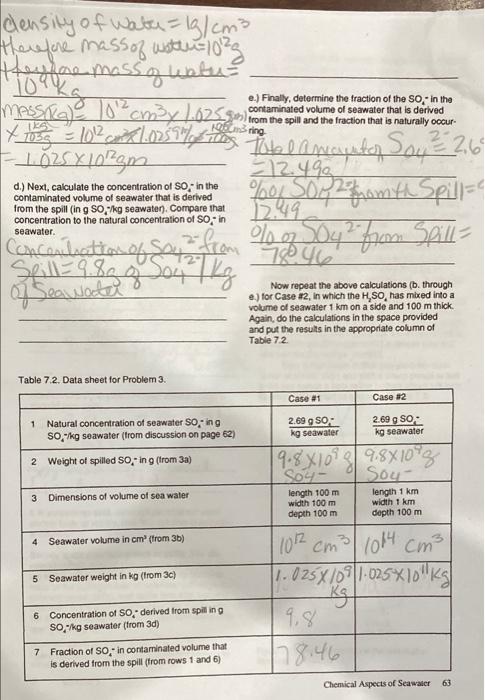 density of water = 1g/cm³
therefore mass of water = 10¹²g
Therefore mass of water =
10⁹ kg
Mass(kg) = 10¹² cm³ x 1.025 gm/
x 1kg/10³g = 10¹² cm³ x 1.025
= 1.025 x 10¹² gm
d.) Next, calculate the concentration of SO₄⁼ in the
contaminated volume of seawater that is derived
from the spill (in g SO₄⁼/kg seawater). Compare that
concentration to the natural concentration of SO₄⁼ in
seawater.
Concentration of SO4²⁻ from
Spill = 9.8g of SO4²⁻/kg
of Seawater
e.) Finally, determine the fraction of the SO₄⁼ in the
contaminated volume of seawater that is derived
from the spill and the fraction that is naturally occur-
ring.
Total amount of SO4²⁻ = 2.6
= 12.49g
% of SO4²⁻ from th Spill =
12.49
% of SO4²⁻ from Spill =
78.46
Now repeat the above calculations (b. through
e.) for Case #2, in which the H₂SO₄ has mixed into a
volume of seawater 1 km on a side and 100 m thick.
Again, do the calculations in the space provided
and put the results in the appropriate column of
Table 7.2.
Table 7.2. Data sheet for Problem 3.
Case #1 Case #2
1 Natural concentration of seawater SO₄⁼ in g SO₄⁼/kg seawater (from discussion on page 62) 2.69 g SO₄⁼ kg seawater 2.69 g SO₄⁼ kg seawater
2 Weight of spilled SO₄⁼ in g (from 3a) 9.8 x 10⁹ g SO4- 9.8 x 10⁹ g SO4-
3 Dimensions of volume of sea water length 100 m width 100 m depth 100 m length 1 km width 1 km depth 100 m
4 Seawater volume in cm³ (from 3b) 10¹² cm³ 10¹⁴ cm³
5 Seawater weight in kg (from 3c) 1.025 x 10⁹ kg 1.025 x 10¹¹ kg
6 Concentration of SO₄⁼ derived from spill in g SO₄⁼/kg seawater (from 3d) 9.8
7 Fraction of SO₄⁼ in contaminated volume that is derived from the spill (from rows 1 and 6) 78.46
Chemical Aspects of Seawater 63